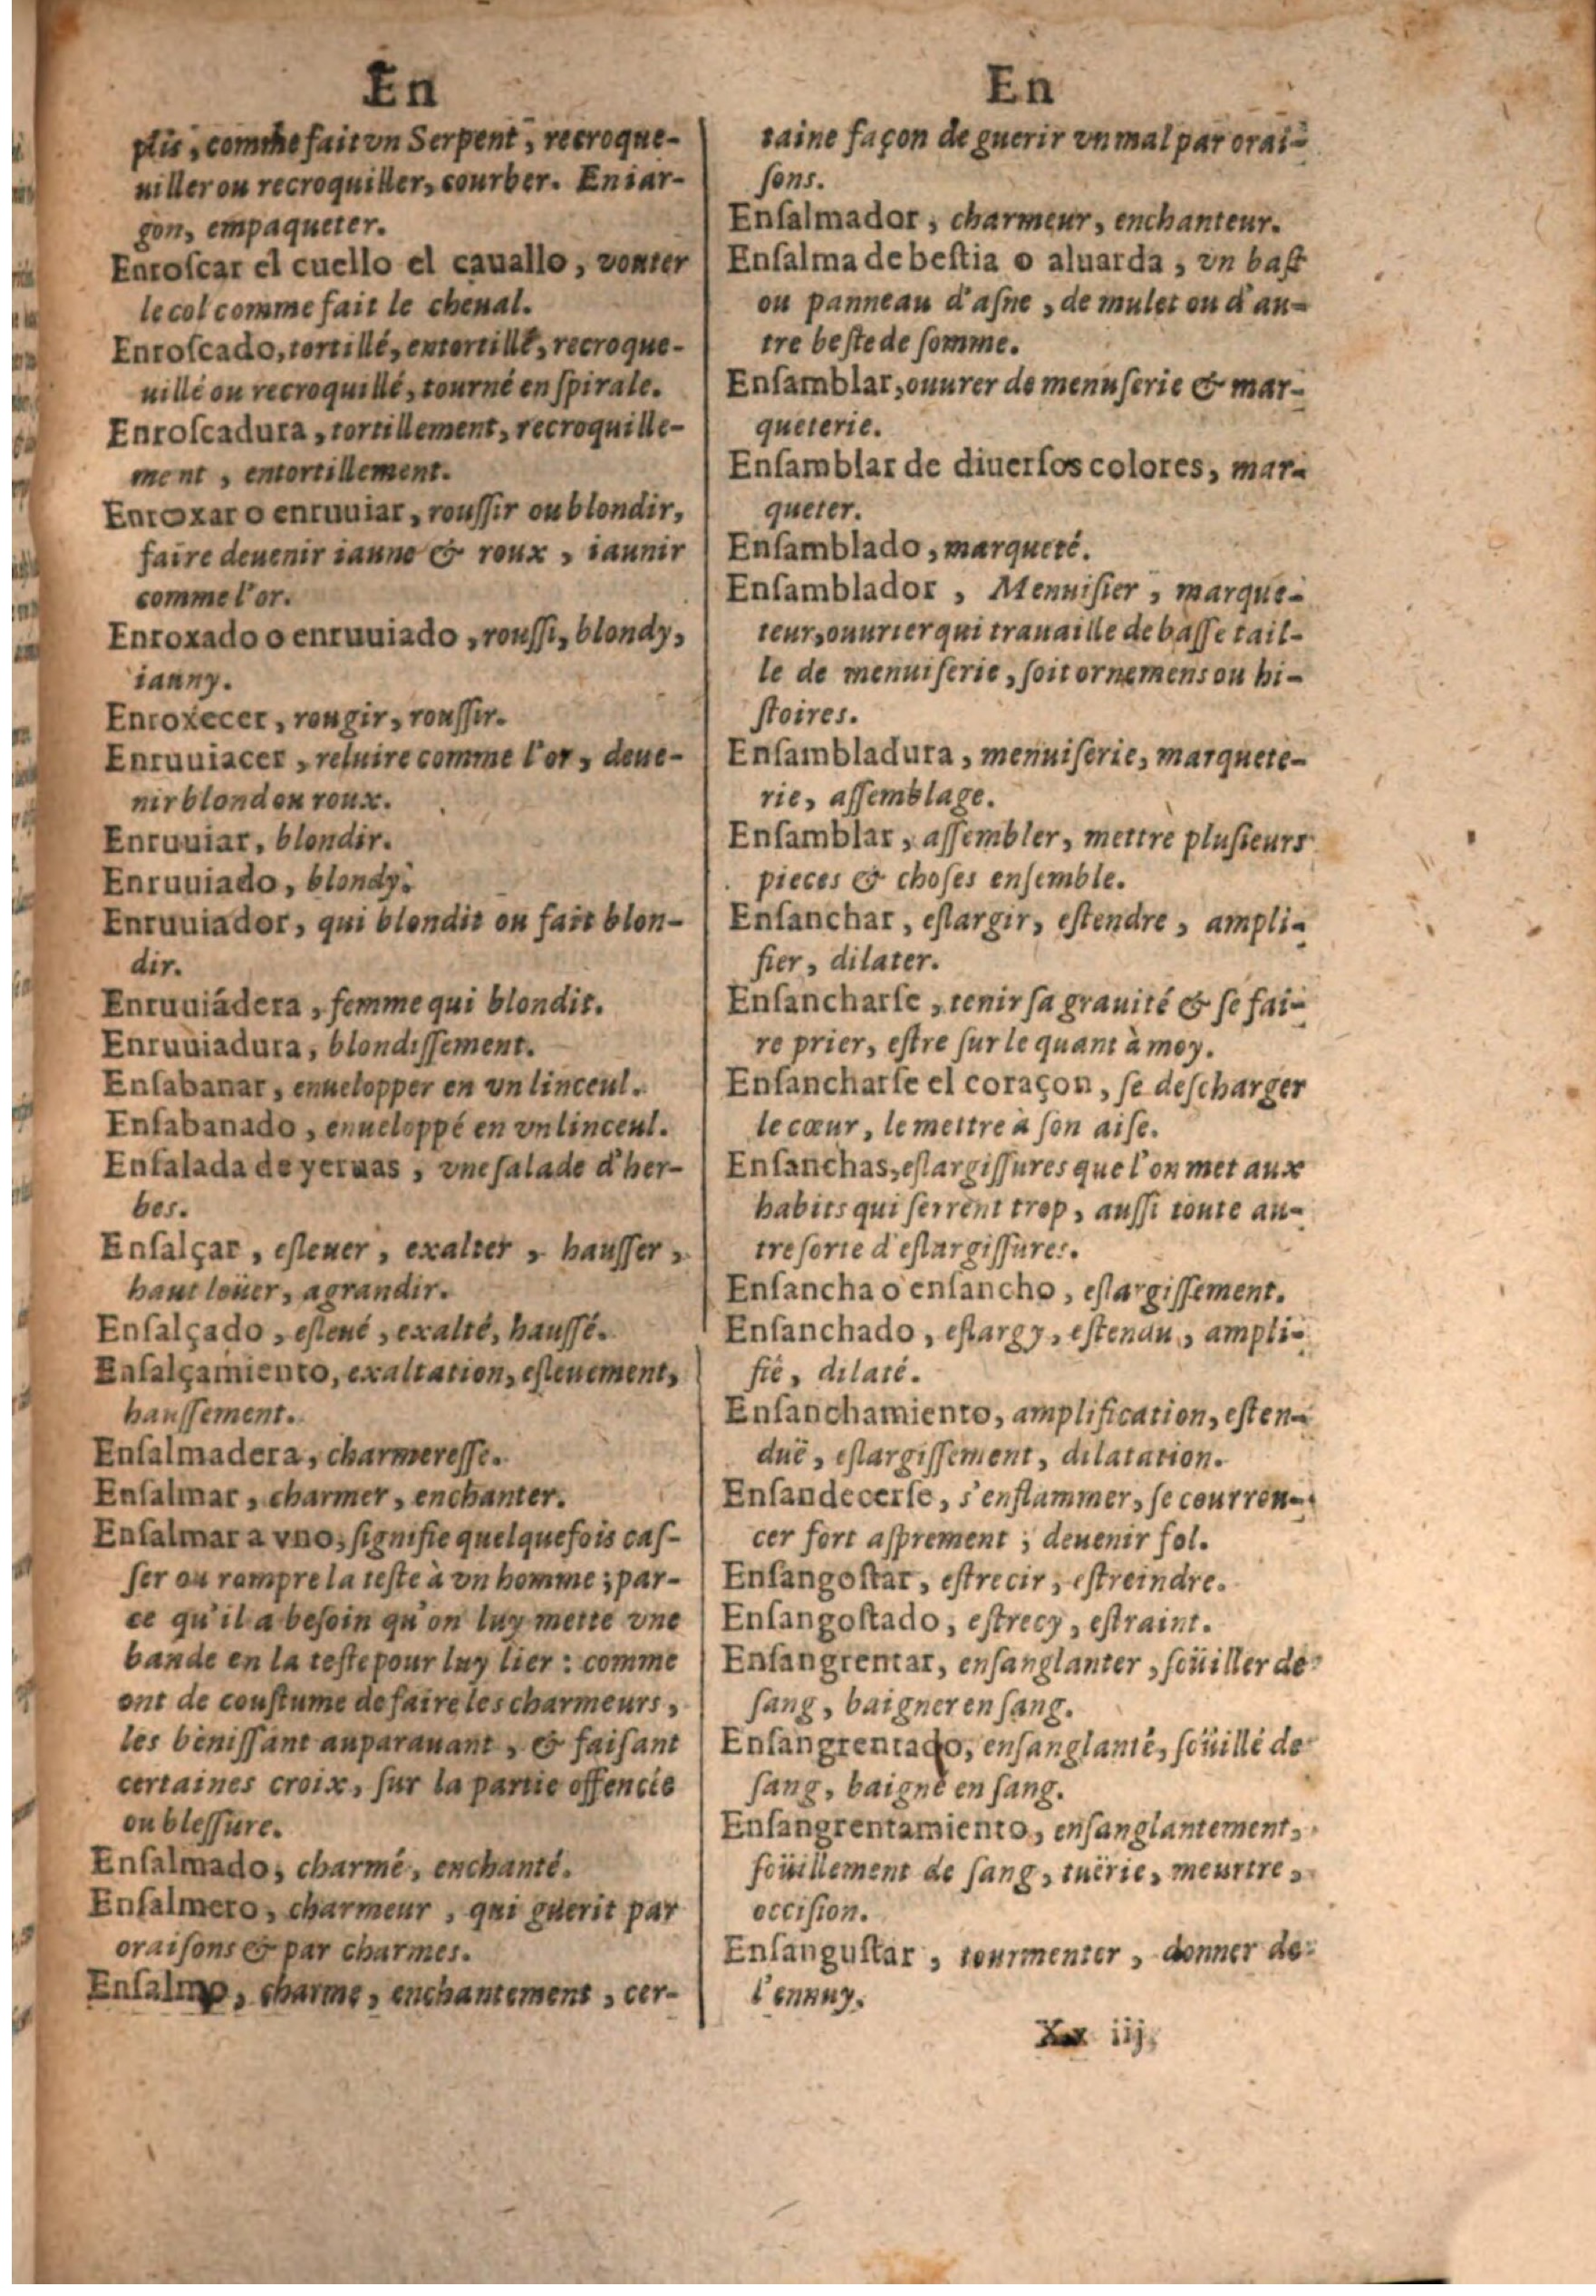 En
plis, comme fait vn Serpent, recroque-
uiller ou recroquiller, courber. En iar-
gon, empaqueter.
Enroſcar el cuello el cauallo, vouter
le col comme fait le cheual.
Enroſcado, tortillé, entortillé, recroque-
uillé ou recroquillé, tourné en ſpirale.
Enroſcadura, tortillement, recroquille-
ment, entortillement.
Enroxar o enruuiar, rouſſir ou blondir,
faire deuenir iaune & roux, iaunir
comme l'or.
Enroxado o enruuiado, rouſſi, blondy,
iauny.
Enroxecer, rougir, rouſſir.
Enruuiacer, reluire comme l'or, deue-
nir blond ou roux.
Enruuiar, blondir.
Enruuiado, blondy.
Enruuiador, qui blondit ou fait blon-
dir.
Enruuiádera, femme qui blondit.
Enruuiadura, blondiſſement.
Enſabanar, enuelopper en vn linceul.
Enſabanado, enueloppé en vn linceul.
Enſalada de yeruas, vne ſalade d'her-
bes.
Enſalçar, eſleuer, exalter, hauſſer,
haut loüer, agrandir.
Enſalçado, eſleué, exalté, hauſſé.
Enſalçamiento, exaltation, eſleuement,
hauſſement.
Enſalmadera, charmereſſe.
Enſalmar, charmer, enchanter.
Enſalmar a vno, ſignifie quelquefois caſ-
ſer ou rompre la teſte à vn homme; par-
ce qu'il a beſoin qu'on luy mette vne
bande en la teſte pour luy lier : comme
ont de couſtume de faire les charmeurs,
les beniſſant auparauant, & faiſant
certaines croix, ſur la partie offencée
ou bleſſure.
Enſalmado, charmé, enchanté.
Enſalmero, charmeur, qui guerit par
oraiſons & par charmes.
Enſalmo, charme, enchantement, cer-
En
taine façon de guerir vn mal par orai-
ſons.
Enſalmador, charmeur, enchanteur.
Enſalma de beſtia o aluarda, vn baſt
ou panneau d'aſne, de mulet ou d'au-
tre beſte de ſomme.
Enſamblar, ouurer de menuſerie & mar-
queterie.
Enſamblar de diuerſos colores, mar-
queter.
Enſamblado, marqueté.
Enſamblador, Menuiſier, marque-
teur, ouurier qui trauaille de baſſe tail-
le de menuiſerie, ſoit ornemens ou hi-
ſtoires.
Enſambladura, menuiſerie, marquete-
rie, aſſemblage.
Enſamblar, aſſembler, mettre pluſieurs
pieces & choſes enſemble.
Enſanchar, eſlargir, eſtendre, ampli-
fier, dilater.
Enſancharſe, tenir ſa grauité & ſe fai-
re prier, eſtre ſur le quant à moy.
Enſancharſe el coraçon, ſe deſcharger
le cœur, le mettre à ſon aiſe.
Enſanchas, eſlargiſſures que l'on met aux
habits qui ſerrent trop, auſſi toute au-
tre ſorte d'eſlargiſſures.
Enſancha o enſancho, eſlargiſſement.
Enſanchado, eſlargy, eſtendu, ampli-
fié, dilaté.
Enſanchamiento, amplification, eſten-
duë, eſlargiſſement, dilatation.
Enſandecerſe, s'enflammer, ſe courrou-
cer fort aſprement ; deuenir fol.
Enſangoſtar, eſtrecir, eſtreindre.
Enſangoſtado, eſtrecy, eſtraint.
Enſangrentar, enſanglanter, ſoüiller de
ſang, baigner en ſang.
Enſangrentado, enſanglanté, ſoüillé de
ſang, baigné en ſang.
Enſangrentamiento, enſanglantement,
ſoüillement de ſang, tuërie, meurtre,
occiſion.
Enſanguſtar, tourmenter, donner de
l'ennuy.
Xx iij